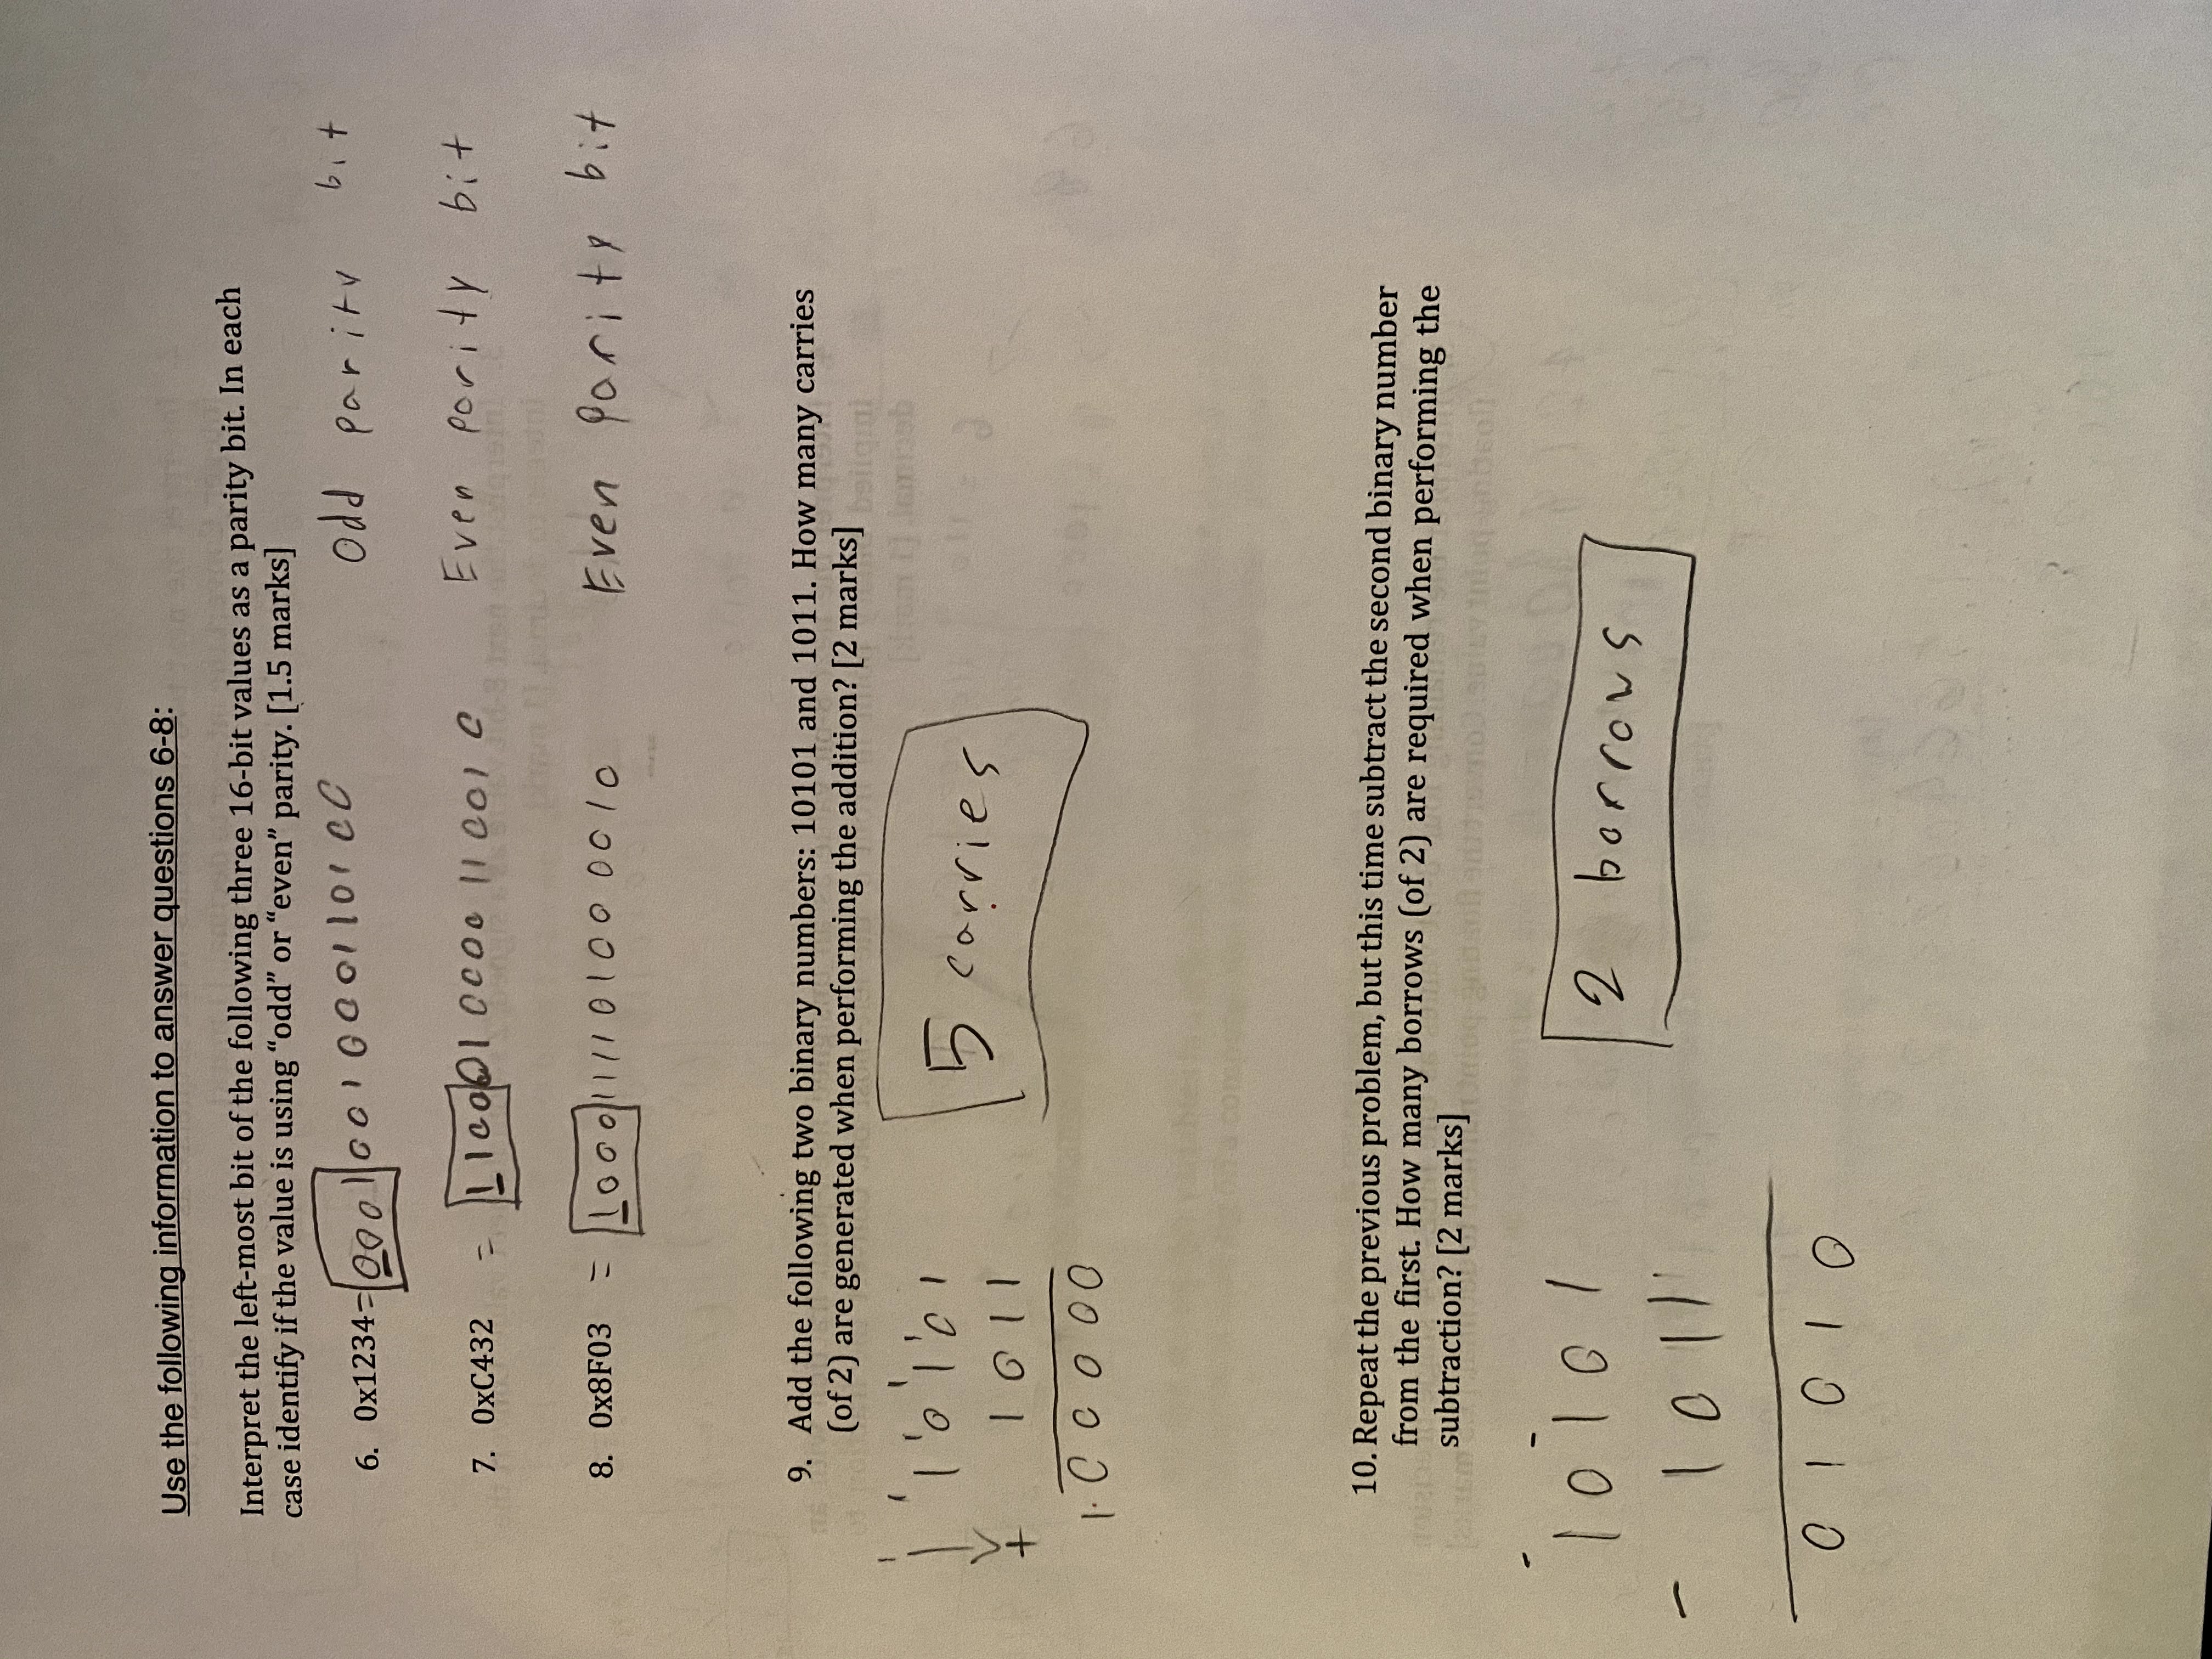 Use the following information to answer questions 6-8:
Interpret the left-most bit of the following three 16-bit values as a parity bit. In each
case identify if the value is using “odd” or “even” parity. [1.5 marks]
6. 0x1234=0001001000110100 Odd parity bit
7. 0xC432 = 1100010000110010 Even parity bit
8. 0x8F03 = 1000111101000010 Even parity bit
9. Add the following two binary numbers: 10101 and 1011. How many carries
(of 2) are generated when performing the addition? [2 marks]
1 1 1 1 1
10101
1011
+
100000
5 carries
10. Repeat the previous problem, but this time subtract the second binary number
from the first. How many borrows (of 2) are required when performing the
subtraction? [2 marks]
10101
- 1011
01010
2 borrows